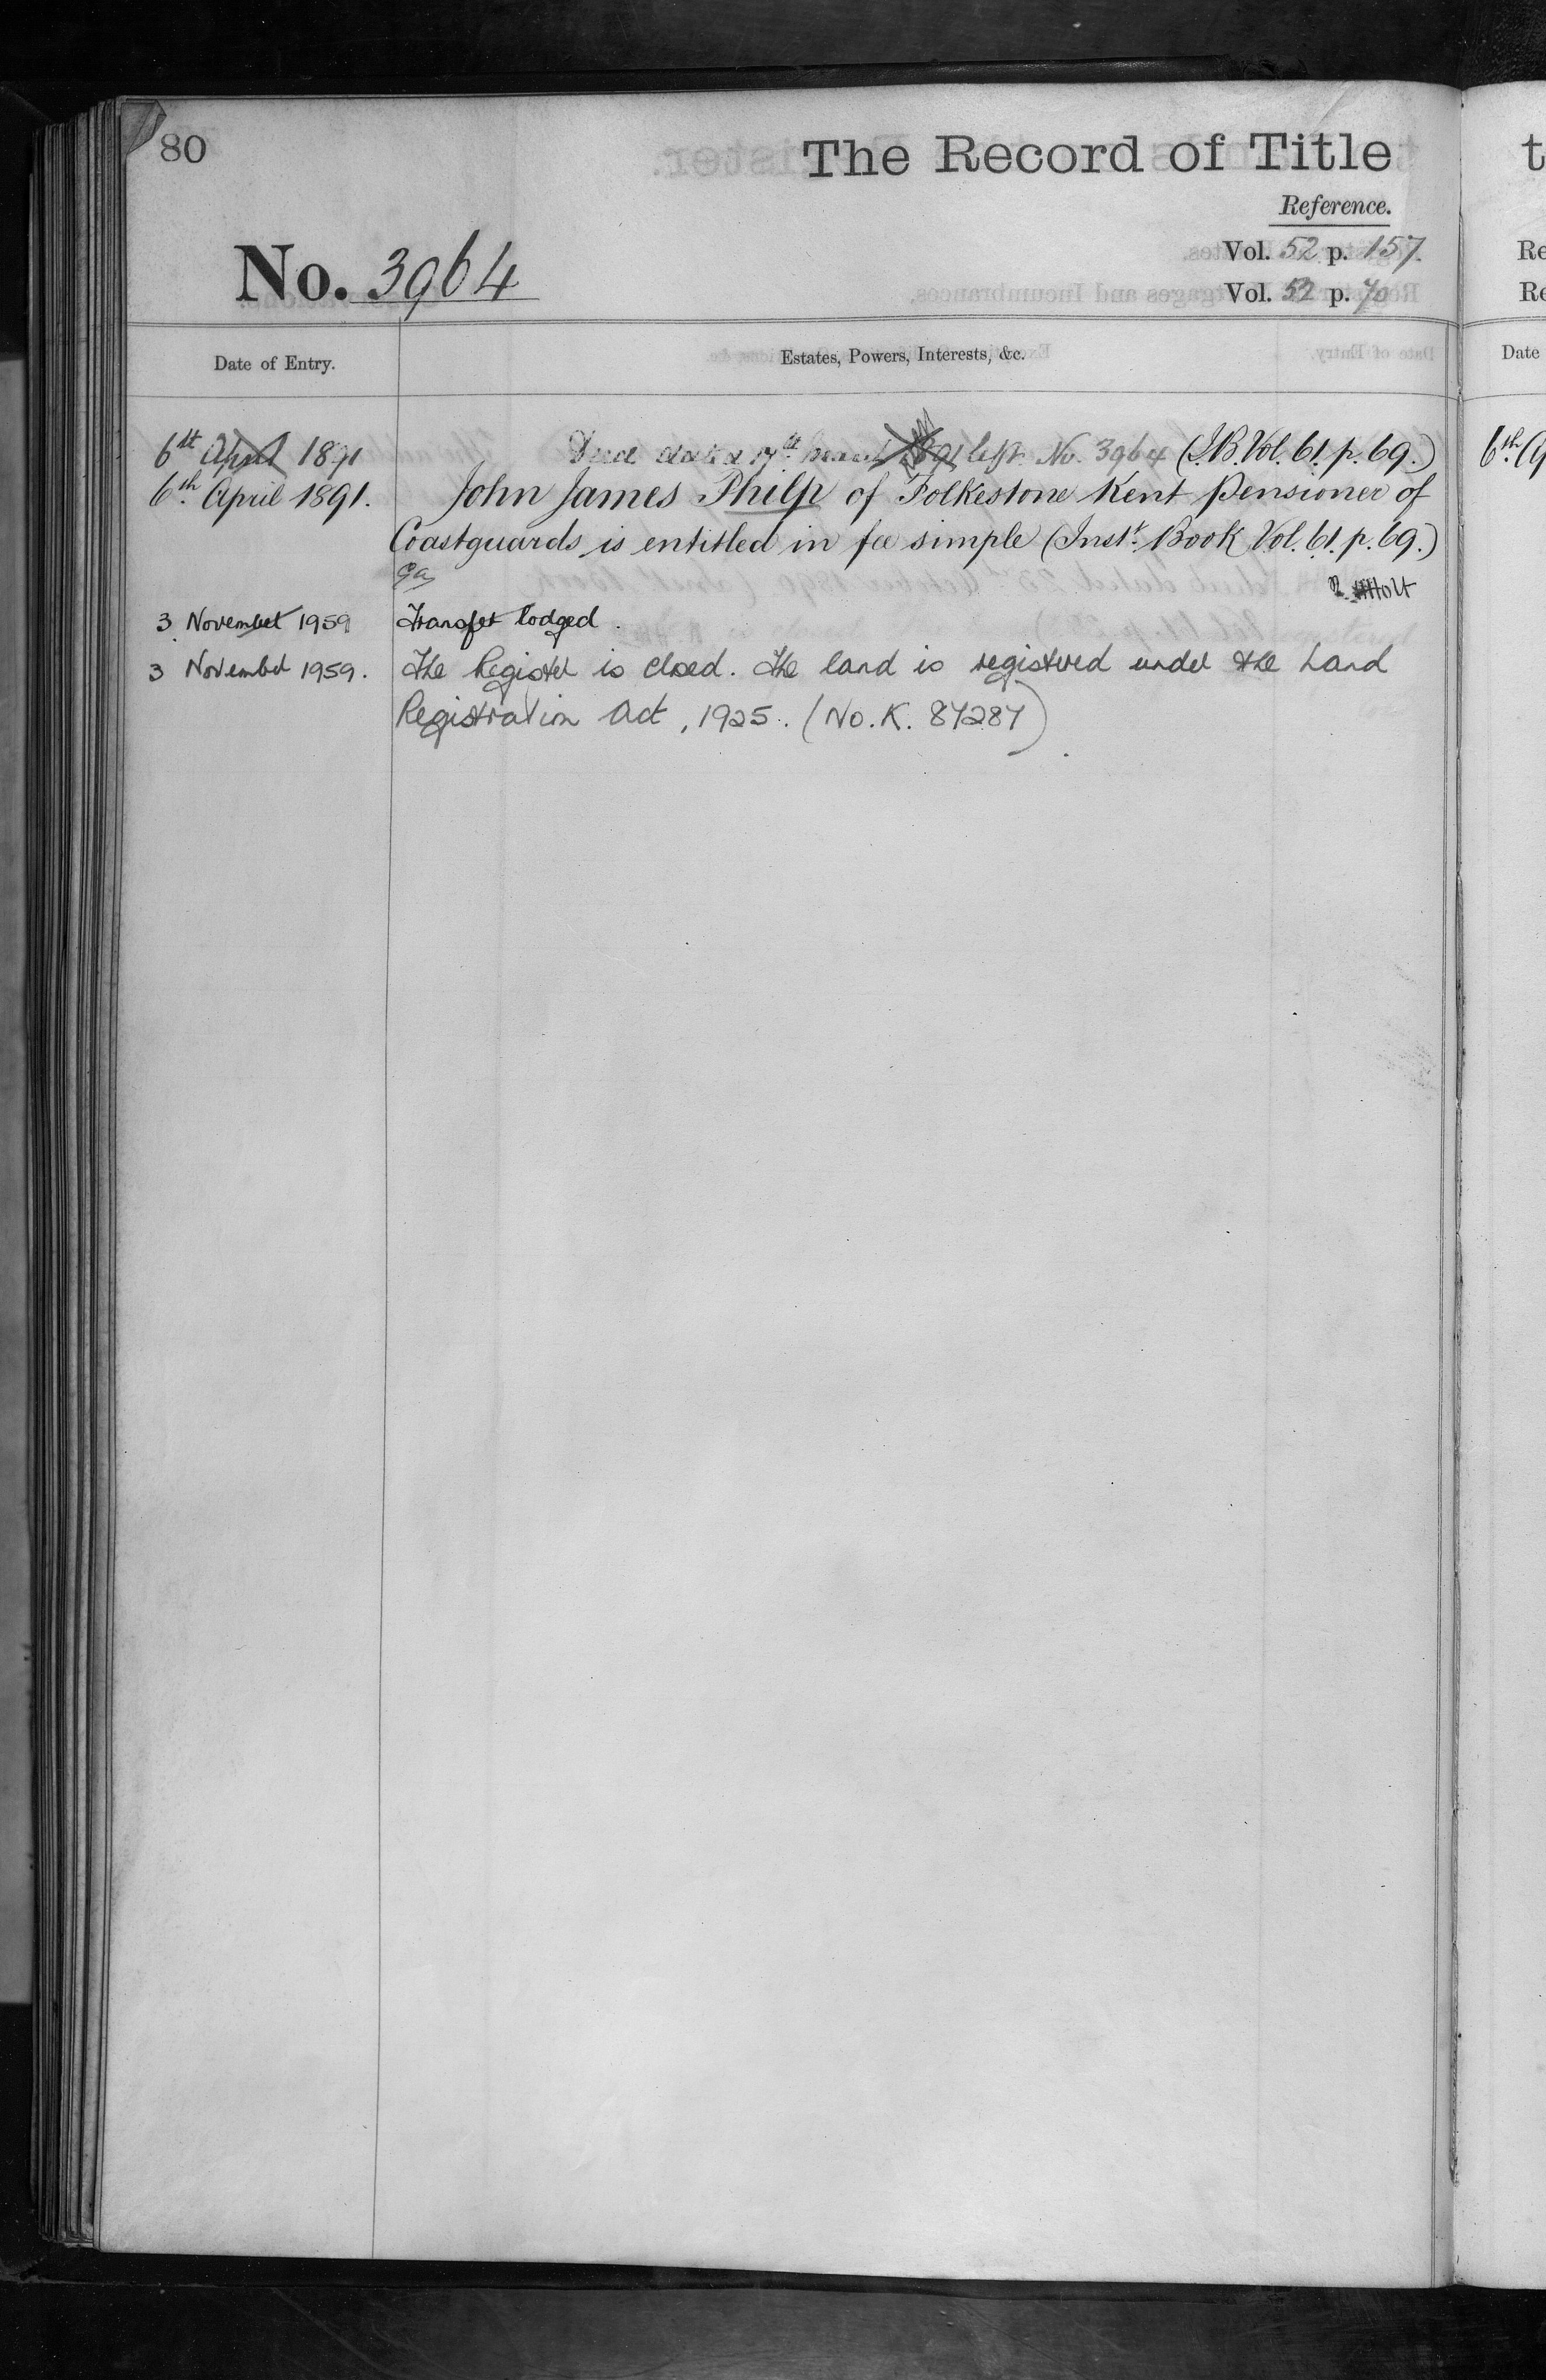 80
The Record of Title
Reference.
No. 3964
Vol. 52 p. 157.
Vol. 52 p. 70
Date of Entry.
Estates, Powers, Interests, &c.
6st April 1891
Deed dated 17th 1891 left No. 3964 (I.B. Vol. 61. p. 69.)
6th April 1891.
John James Philp of Folkestone Kent Pensioner of
Coastguards is entitled in fee simple (Inst. Book Vol. 61. p. 69.)
3 November 1959
Transfer lodged.
3 November 1959.
The Register is closed. The land is registered under the Land
Registration Act, 1925. (No. K. 87287)
t
Re
Re
Date
6th